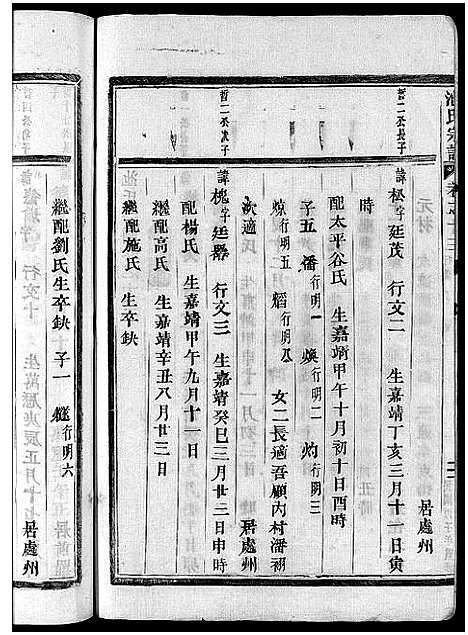 池氏宗譜 卷之十三
哲二公長子
諱松字廷茂 行文二 生嘉靖丁亥三月十一日寅
時 居處州
配太平谷氏 生嘉靖甲午十月初十日酉時
子五 潘行明一 煥行明二 灼行明三
行明五 熖行明八 女二長適吾顧內村潘祤
次適氏 居處州
哲二公次子
諱槐字廷器 行文三 生嘉靖癸巳三月廿三日申時
配楊氏 生嘉靖甲午九月十一日
繼配高氏 生嘉靖辛丑八月廿三日
繼配施氏 生卒缺
繼配劉氏生卒缺 子一 行明六
居處州